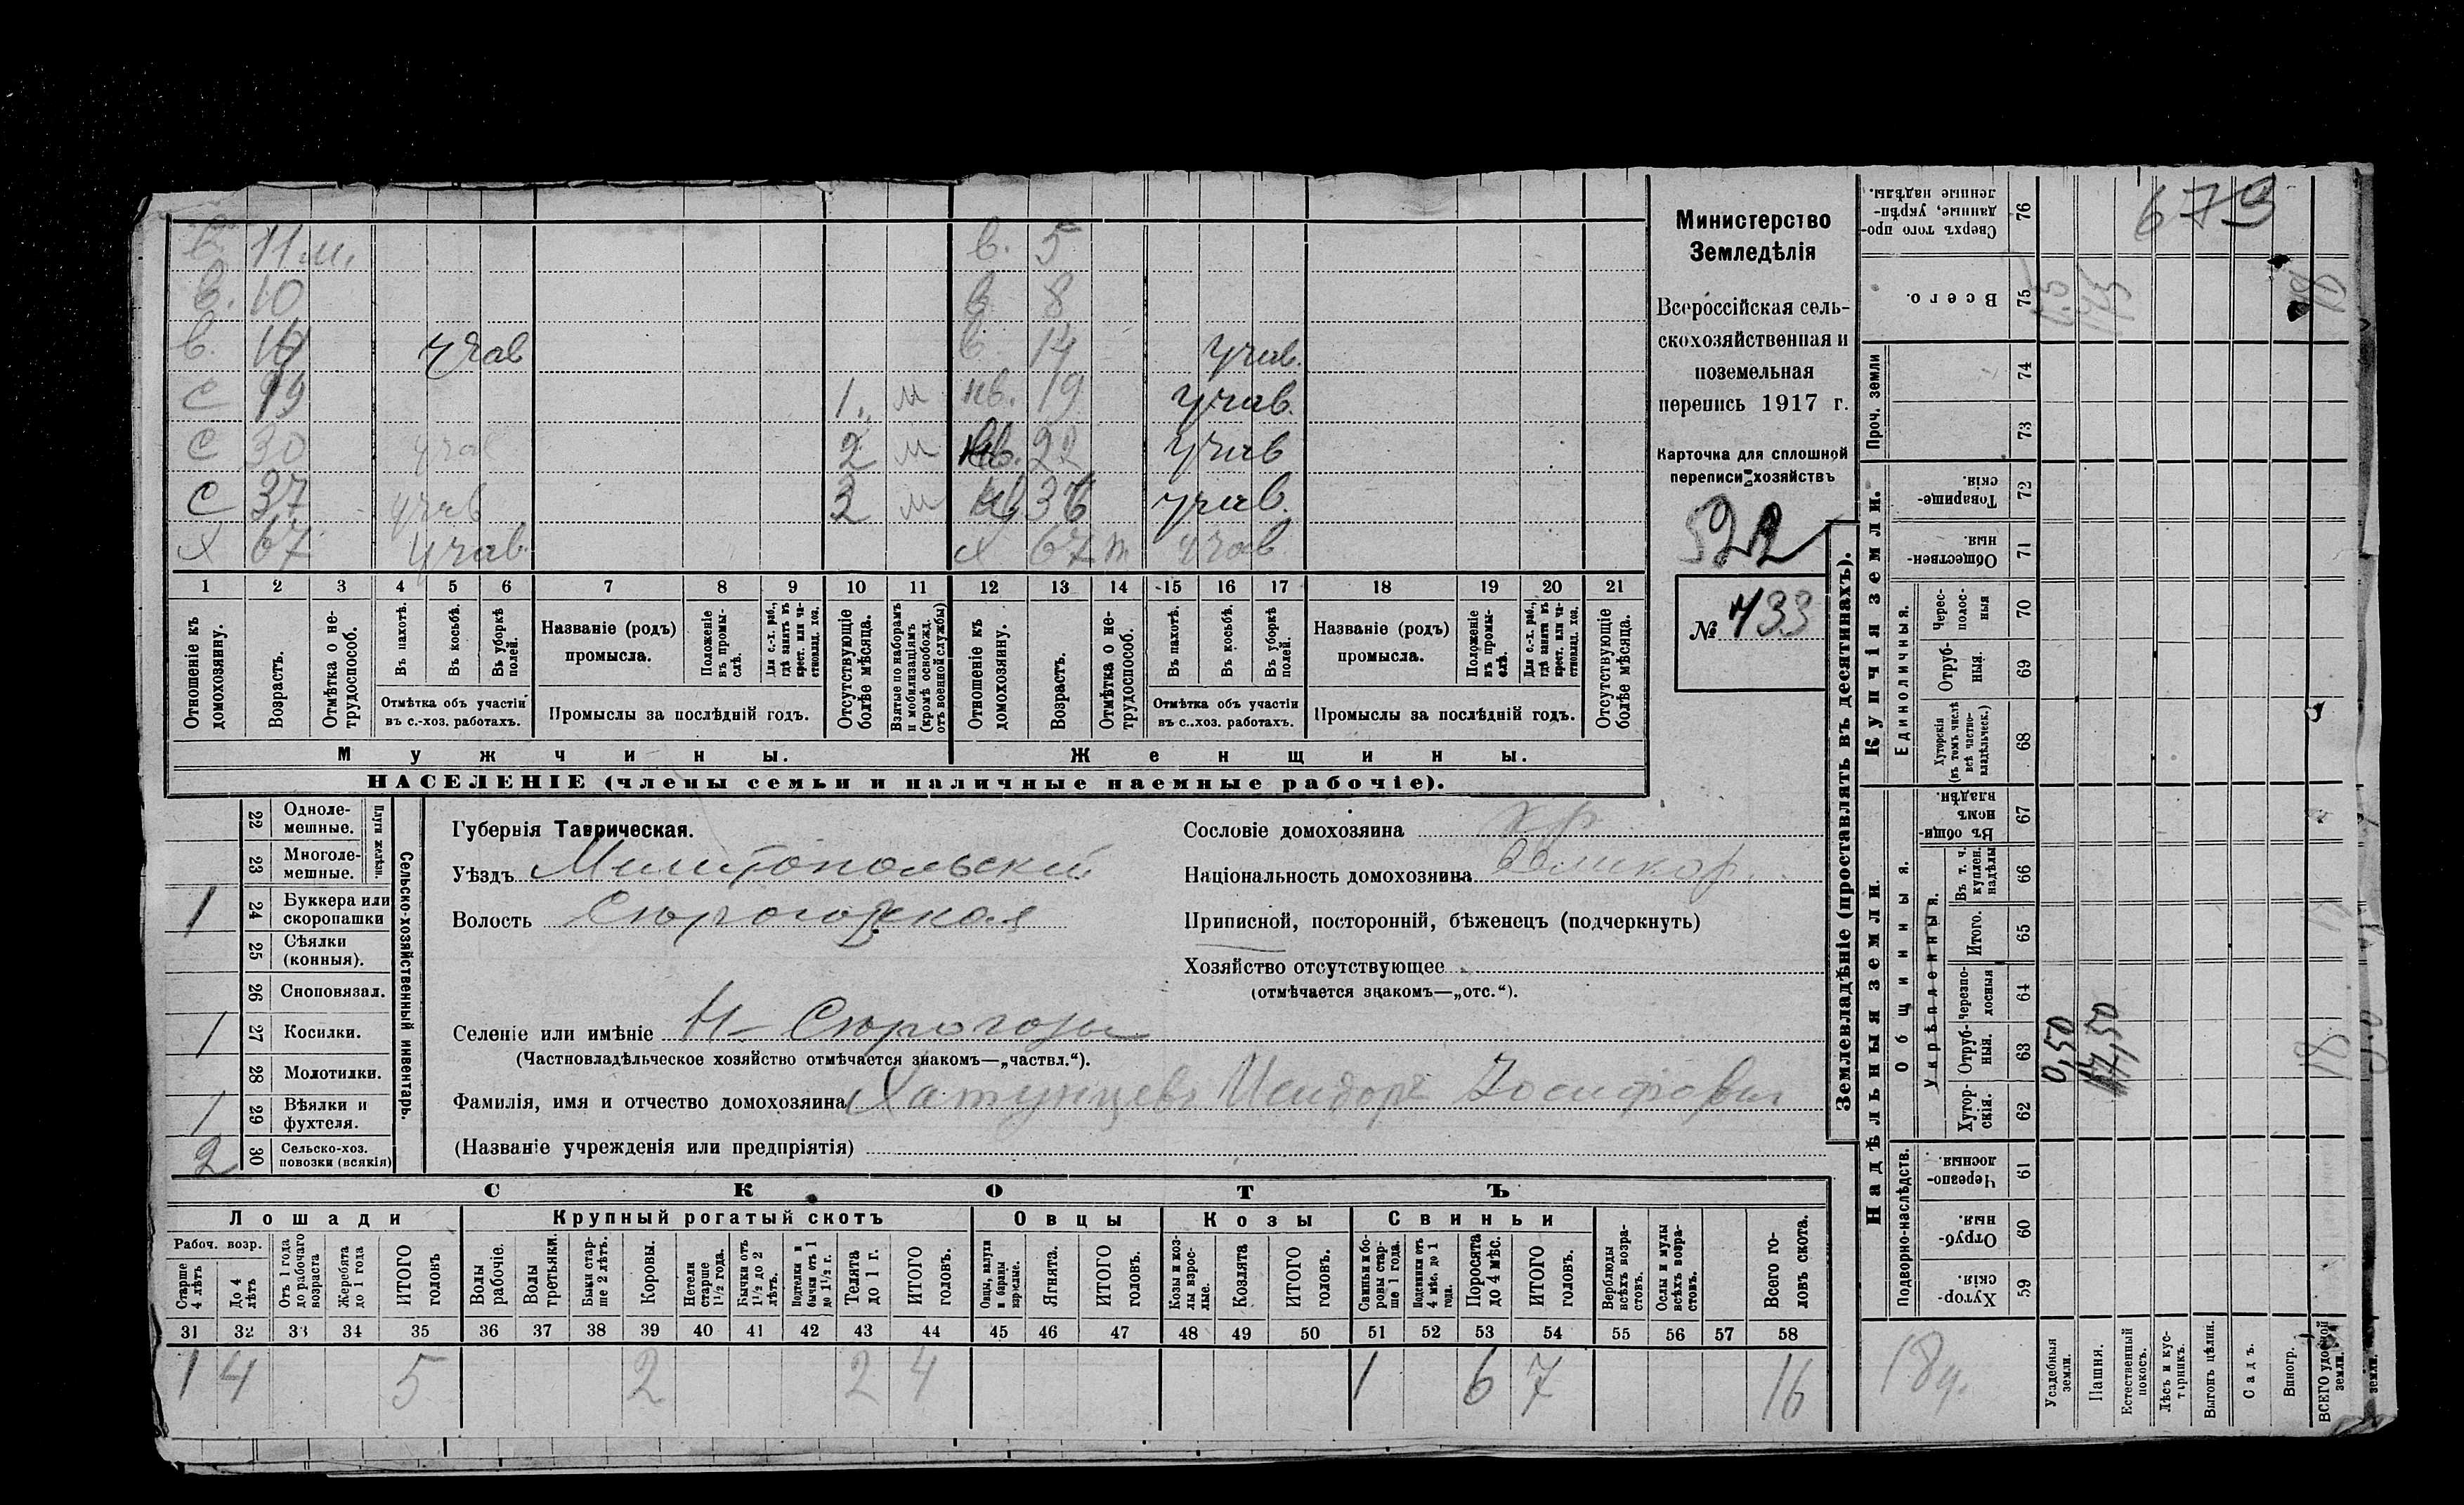 в. 11 м. в. 5
в. 10 в 8
в. учав в 14 учав.
с 19 1. м нв. 19 учав.
с 30 учав 2 м нв. 22 учав
с 37 учав 3 м нв 36 учав.
х 67 учав х 67 т учав
1 2 3 4 5 6 7 8 9 10 11 12 13 14 15 16 17 18 19 20 21
Отношеніе къ домохозяину.
Возрастъ.
Отмѣтка о не-трудоспособ.
Въ пахотѣ.
Въ косьбѣ.
Въ уборкѣ полей.
Отмѣтка объ участіи
въ с.-хоз. работахъ.
Названіе (родъ)
промысла.
Положеніе въ промы-слѣ.
Для с.-х. раб., гдѣ занятъ въ крест. или ча-стновлад. хоз.
Промыслы за послѣдній годъ.
Отсутствующіе болѣе мѣсяца.
Взятые по наборамъ и мобилизаціямъ (кромѣ освобожд. отъ военной службы)
Отношеніе къ домохозяину.
Возрастъ.
Отмѣтка о не-трудоспособ.
Въ пахотѣ.
Въ косьбѣ.
Въ уборкѣ полей.
Отмѣтка объ участіи
въ с.-хоз. работахъ.
Названіе (родъ)
промысла.
Положеніе въ промы-слѣ.
Для с.-х. раб., гдѣ занята въ крест. или ча-стновлад. хоз.
Промыслы за послѣдній годъ.
Отсутствующіе болѣе мѣсяца.
Мужчины. Женщины.
НАСЕЛЕНІЕ (члены семьи и наличные наемные рабочіе).
Министерство
Земледѣлія
Всероссійская сель-
скохозяйственная и
поземельная
перепись 1917 г.
Карточка для сплошной
переписи хозяйствъ
522
№ 433
Сельско-хозяйственный инвентарь.
Плуги желѣзн.
22 Одноле-мешные.
23 Многоле-мешные.
1 24 Буккера или скоропашки
25 Сѣялки (конныя).
26 Сноповязал.
1 27 Косилки.
28 Молотилки.
1 29 Вѣялки и фухтеля.
2 30 Сельско-хоз. повозки (всякія)
Губернія Таврическая.
Уѣздъ Мелитопольскій
Волость Сюрогозская
Селеніе или имѣніе Н-Сюрогозы
(Частновладѣльческое хозяйство отмѣчается знакомъ—„частвл.“).
Фамилія, имя и отчество домохозяина Хатунцевъ Исидоръ Іосифович
(Названіе учрежденія или предпріятія)
Сословіе домохозяина кр.
Національность домохозяина великор.
Приписной, посторонній, бѣженецъ (подчеркнуть)
Хозяйство отсутствующее
(отмѣчается знакомъ—„отс.“).
СКОТЪ
Лошади Крупный рогатый скотъ Овцы Козы Свиньи
Рабоч. возр.
Старше 4 лѣтъ
До 4 лѣтъ
Отъ 1 года до рабочаго возраста
Жеребята до 1 года
ИТОГО головъ
Волы рабочіе.
Волы третьяки.
Быки стар-ше 2 лѣтъ.
Коровы.
Нетели старше 1½ года.
Бычки отъ 1½ до 2 лѣтъ.
Подтелки и бычки отъ 1 до 1½ г.
Телята до 1 г.
ИТОГО головъ.
Овцы, валухи и бараны взрослые.
Ягнята.
ИТОГО головъ.
Козы и коз-лы взрос-лые.
Козлята
ИТОГО головъ.
Свиньи и бо-ровы стар-ше 1 года.
Подсвинки отъ 4 мѣс. до 1 года.
Поросята до 4 мѣс.
ИТОГО головъ.
Верблюды всѣхъ возра-стовъ.
Ослы и мулы всѣхъ возра-стовъ.
Всего го-ловъ скота.
31 32 33 34 35 36 37 38 39 40 41 42 43 44 45 46 47 48 49 50 51 52 53 54 55 56 57 58
1 4 5 2 2 4 1 6 7 16
Землевладѣніе (проставлять въ десятинахъ).
Купчія земли.
Проч. земли
Единоличныя.
Сверхъ того про-данные, укрѣп-ленные надѣлы. 76
679
Всего. 75
74
73
Товарище-скія. 72
Обществен-ныя. 71
Черес-полос-ныя 70
Отруб-ныя. 69
Хуторскія (въ томъ числѣ всѣ частно-владѣльческ.) 68
Надѣльныя земли.
Общинныя.
Укрѣпленныя.
Въ общин-номъ владѣн. 67
Въ т. ч. куплен. надѣлы 66
Итого. 65
Черезпо-лосныя 64
Отруб-ныя. 63
0,50
17,50
18
Хутор-скія. 62
Подворно-наслѣдств.
Черезпо-лосныя. 61
Отруб-ныя. 60
Хутор-скія. 59
Усадебныя земли.
Пашня.
Естественный покосъ.
Лѣсъ и кус-тарникъ.
Выгонъ цѣлин.
Садъ.
Виногр.
ВСЕГО удобной земли.
земли.